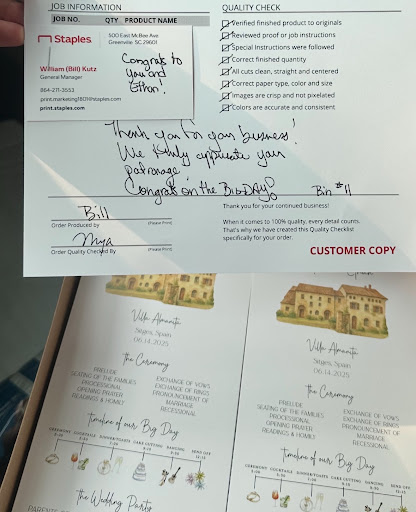 JOB INFORMATION
QUALITY CHECK
JOB NO. QTY PRODUCT NAME
Staples
500 East McBee Ave
Greenville SC 29601
William (Bill) Kutz
General Manager
864-271-3553
print.staples.com
Congrats to
you and
Ethan!
Verified finished product to originals
Reviewed proof or job instructions
Special Instructions were followed
Correct finished quantity
All cuts clean, straight and centered
Correct paper type, color and size
Images are crisp and not pixelated
Colors are accurate and consistent
Thank you for your business!
We truly appreciate your
patronage
Congrats on the BIG DAY!
Bin #11
Bill
Order Produced by (Please Print)
Mya
Order Quality Checked By (Please Print)
Thank you for your continued business!
When it comes to 100% quality, every detail counts.
That's why we have created this Quality Checklist
specifically for your order.
CUSTOMER COPY
Villa Almanita
Sitges, Spain
06.14.2025
the Ceremony
PRELUDE
SEATING OF THE FAMILIES
PROCESSIONAL
OPENING PRAYER
READINGS & HOMILY
EXCHANGE OF VOWS
EXCHANGE OF RINGS
PRONOUNCEMENT OF
MARRIAGE
RECESSIONAL
Timeline of our Big Day
CEREMONY COCKTAILS DINNER/TOASTS CAKE CUTTING DANCING SEND OFF
the Wedding Party
Spain
Villa Almanita
Sitges, Spain
06.14.2025
the Ceremony
PRELUDE
SEATING OF THE FAMILIES
PROCESSIONAL
OPENING PRAYER
READINGS & HOMILY
EXCHANGE OF VOWS
EXCHANGE OF RINGS
PRONOUNCEMENT OF
MARRIAGE
RECESSIONAL
Timeline of our Big Day
CEREMONY COCKTAILS DINNER/TOASTS CAKE CUTTING DANCING SEND OFF